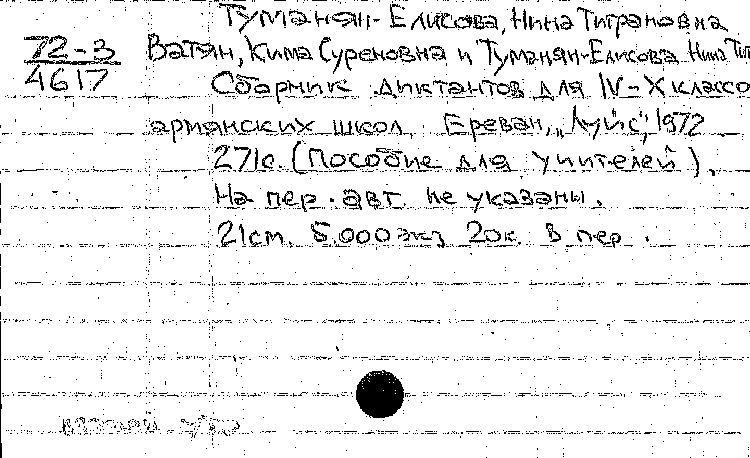 Туманян-Елисова, Нина Тиграновна
72-3
4617
Ватян, Кима Суреновна и Туманян-Елисова Нина Тиг
Сборник диктантов для IV-X классо
армянских школ. Ереван, „Луйс", 1972
271с. (Пособие для учителей).
На пер. авт. не указаны.
21см. 5.000 экз. 20к. В пер.